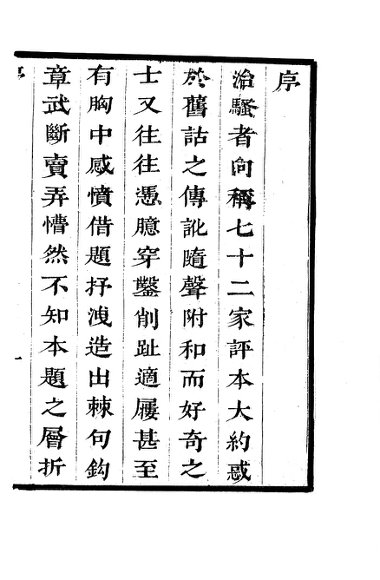 序
治騷者向稱七十二家評本大約惑
於舊詁之傳訛隨聲附和而好奇之
士又往往憑臆穿鑿削趾適屨甚至
有胸中感憤借題抒洩造出棘句鈎
章武斷賣弄懵然不知本題之層折